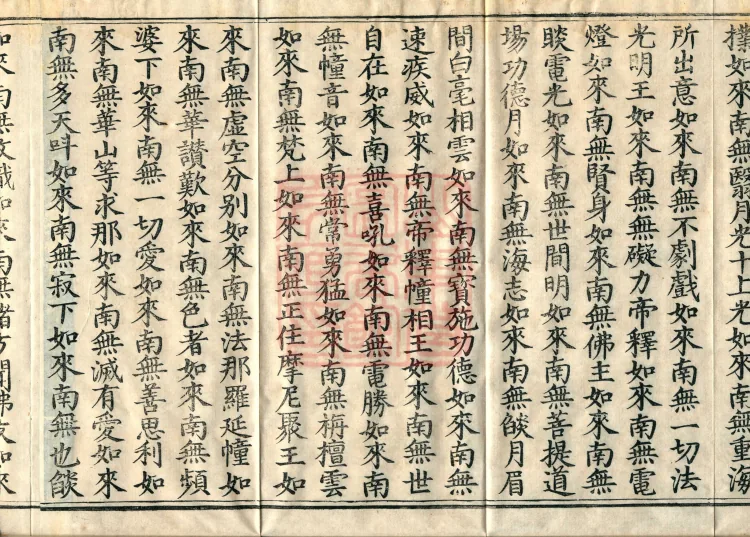 如來南無翳月光十上光如來南無重海
所出意如來南無不劇戲如來南無一切法
光明王如來南無無礙力帝釋如來南無電
燈如來南無賢身如來南無佛主如來南無
睒電光如來南無世間明如來南無菩提道
場功德月如來南無海志如來南無餤月眉
間白毫相雲如來南無寶施功德如來南無
速疾威如來南無帝釋幢相王如來南無世
自在如來南無喜吼如來南無電勝如來南
無幢音如來南無常勇猛如來南無栴檀雲
如來南無梵上如來南無正住摩尼聚王如
來南無虛空分別如來南無法那羅延幢如
來南無華讚歎如來南無色者如來南無頻
婆下如來南無一切愛如來南無善思利如
來南無華山等求那如來南無滅有愛如來
南無多天吽如來南無寂下如來南無也餤
如來南無如來南無諸方聞佛友如來